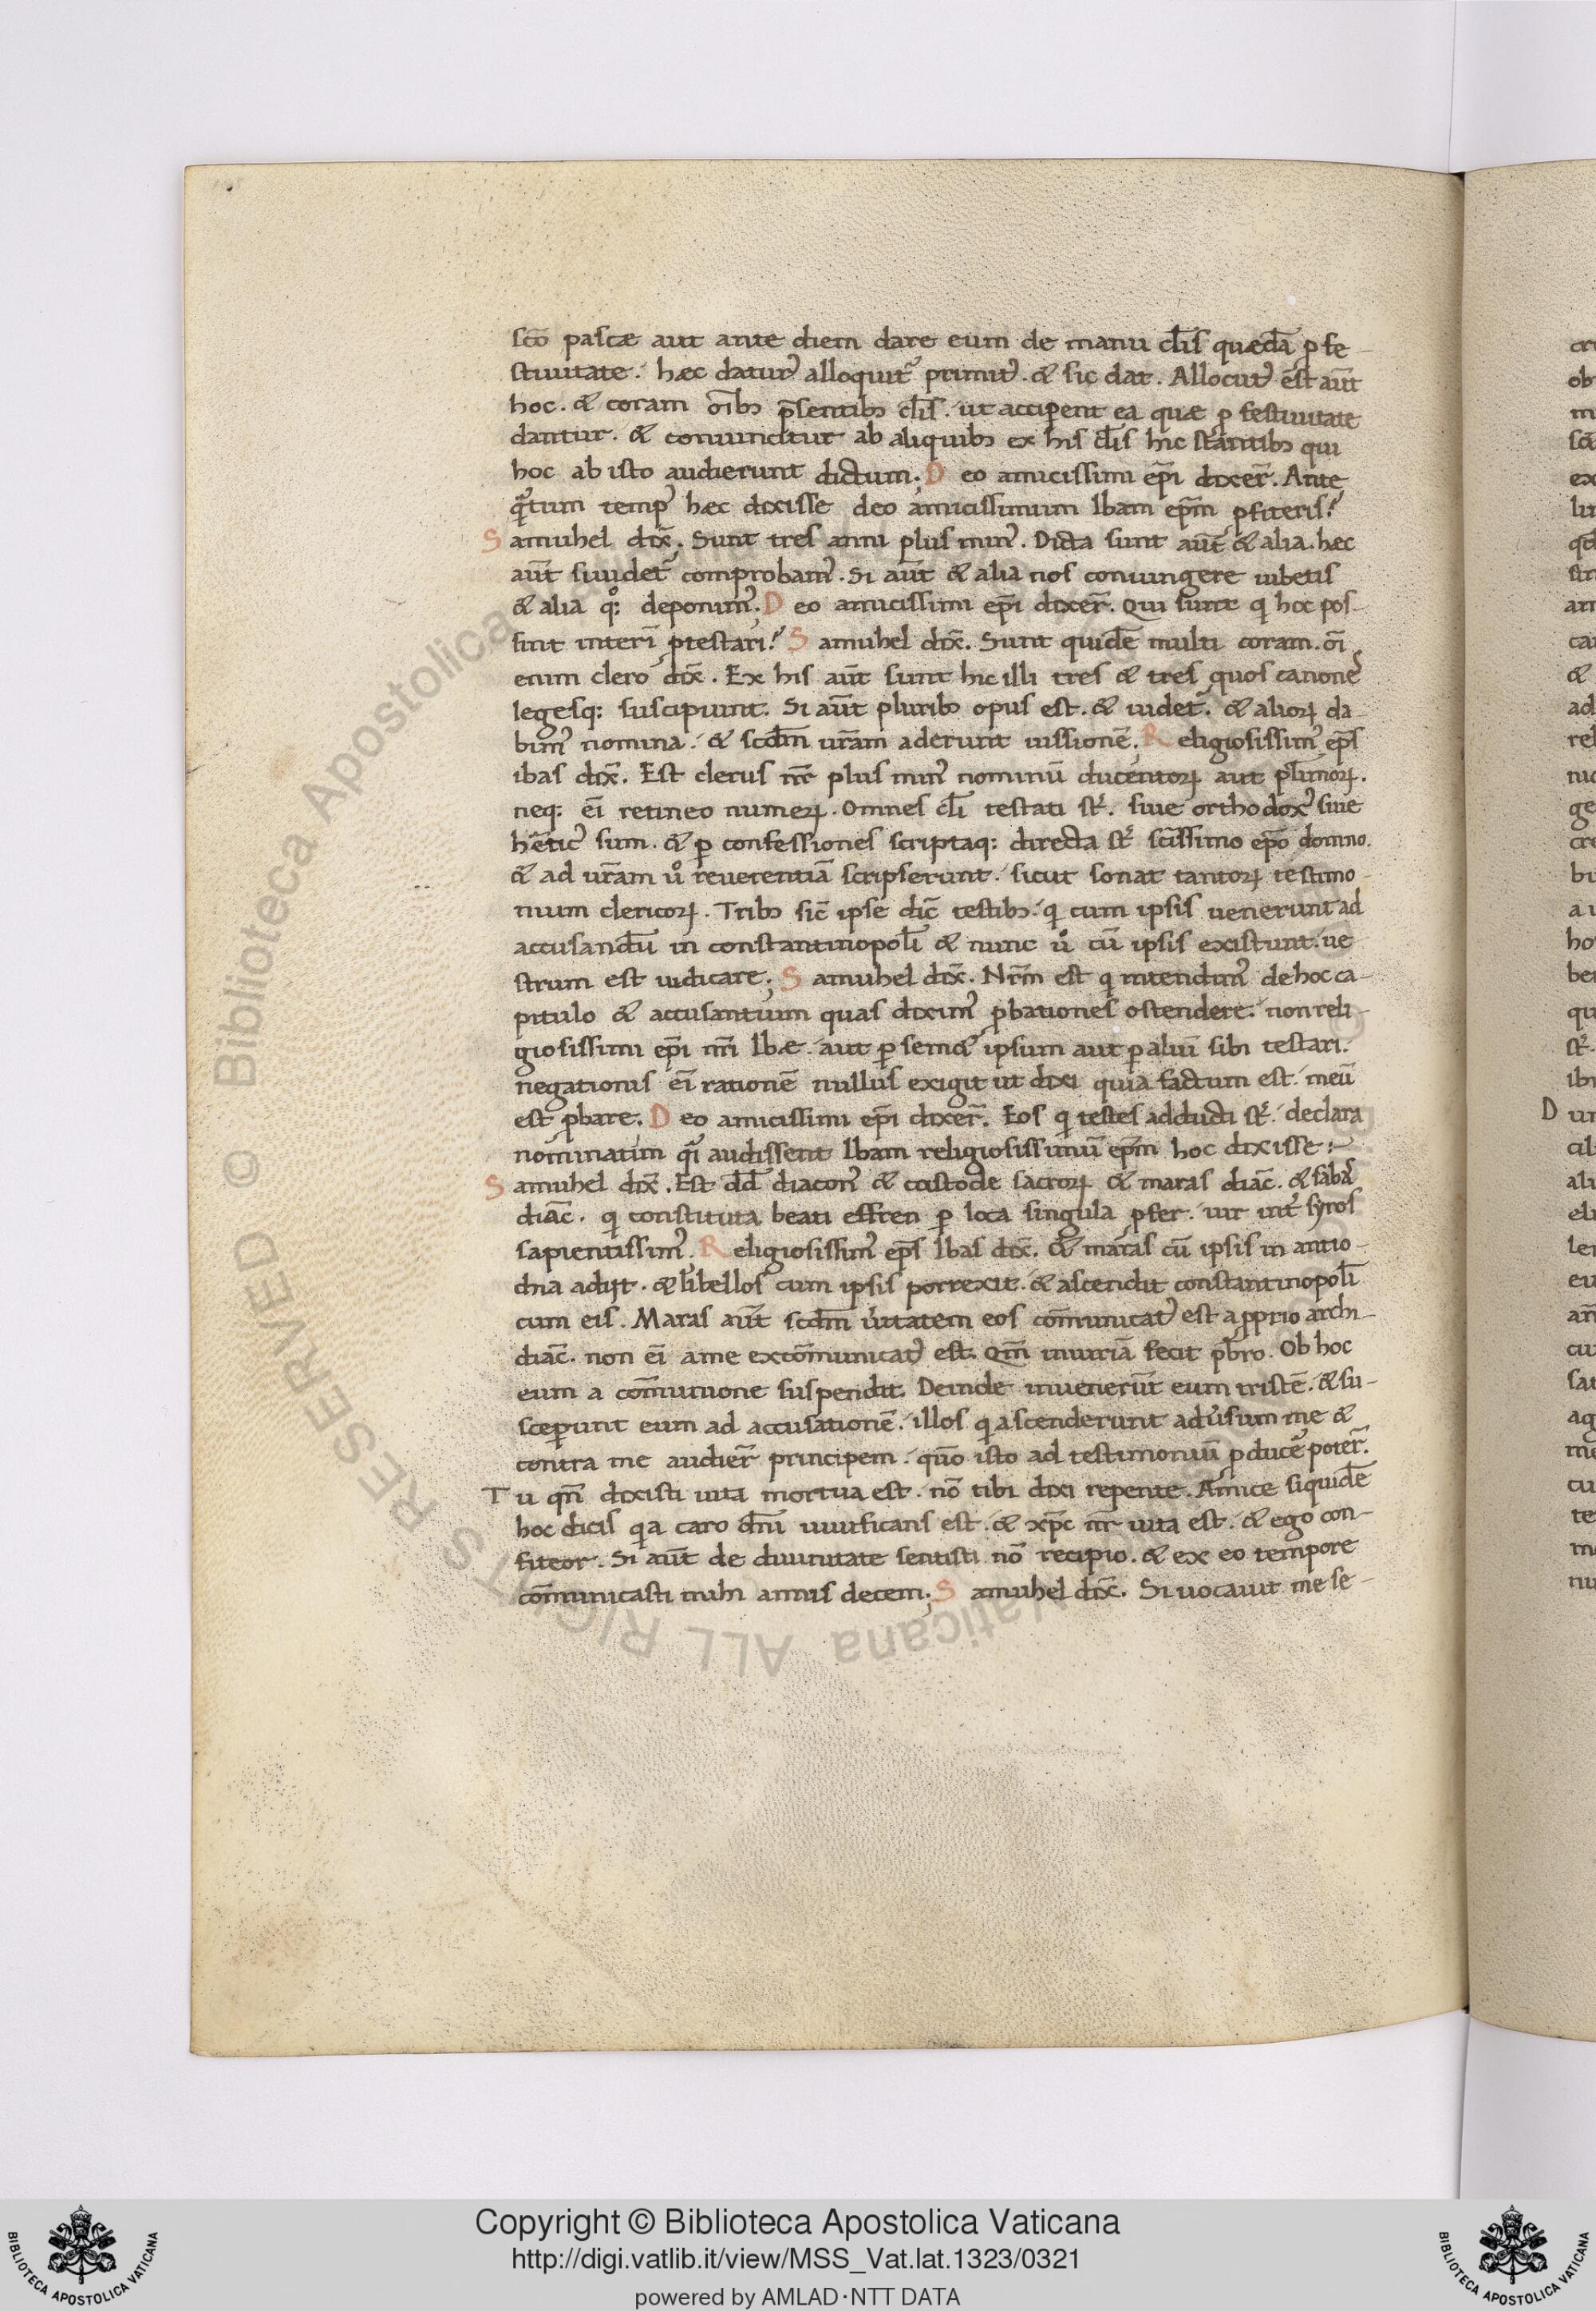 scō pascæ aut ante diem dare eum de manu cl̄is quædā ꝑ fe-
stiuitate. hæc datur᾽ alloquit᾽ primit᾽. & sic dat. Allocut᾽ est aūt
hoc. & coram om̄ib; p̄sentib; cl̄is. ut acciperent ea quæ ꝑ festiuitate
dantur. & conuincitur ab aliquib; ex his cl̄is hic stantib; qui
hoc ab isto audierunt dictum; D eo amicissimi ep̄i dixer̄. Ante
q̄ntum temp᾽ hæc dixisse deo amicissimum Ibam ep̄m ꝓfiteris?
S amuhel dix̄. Sunt tres anni plus min᾽. Dicta sunt aūt & alia. hæc
aūt si uidet᾽ comprobam᾽. Si aūt & alia nos coniungere iubetis
& alia q°q: deponim᾽; D eo amicissimi ep̄i dixer̄. Qui sunt qi hoc pos-
sint interī ꝓtestari? S amuhel dix̄. Sunt quidē multi coram. om̄i
enim clero dix̄. Ex his aūt sunt hic illi tres & tres quos canone᾽
legesq: suscipiunt. Si aūt plurib; opus est. & uidet᾽. & alioꝝ da-
bim᾽ nomina. & scdm̄ ur̄am aderunt iussionē; R eligiosissim᾽ ep̄s
ibas dix̄. Est clerus nr̄ plus min᾽ nominū ducentoꝝ aut pl̄imoꝝ.
neq: ei᾽ retineo numeꝝ. Omnes cl̄i testati st᾽. siue orthodox᾽ siue
hēritic᾽ sum. & ꝑ confessiones scriptaq: directa st᾽ sc̄issimo ep̄o domno.
& ad ur̄am u° reuerentiā scripserunt. sicut sonat tantoꝝ testimo-
nium clericoꝝ. Trib; sic̄ ipse dic̄ testib;. qi cum ipsis uenerunt ad
accusandū in constantinopoli᾽ & nunc u° cū ipsis existunt. ue-
strum est iudicare; S amuhel dix̄. Nr̄m est qi intendim᾽ de hoc ca-
pitulo & accusantium quas dixim᾽ ꝓbationes ostendere. non reli-
giosissimi ep̄i nr̄i Ibæ. aut ꝑ semet ipsum aut ꝑ aliū sibi testari.
negationis ei᾽ rationē nullus exigit ut dixi quia factum est. meū
est ꝓbare. D eo amicissimi ep̄i dixer̄. Eos qi testes adducti st᾽. declara
nominatim qi audissent Ibam religiosissimū ep̄m hoc dixisse:
S amuhel dix̄. Est dd̄ diacon᾽ & custode sacroꝝ & maras diac̄. & saba᾽
diac̄. qi constituta beati effren ꝑ loca singula ꝓfer. uir int᾽ syros
sapientissim᾽. R eligiosissim᾽ ep̄s Ibas dix̄. & maras cū ipsis in antio-
chia adijt. & libellos cum ipsis porrexit. & ascendit constantinopoli᾽
cum eis. Maras aūt scdm̄ u᾽itatem eos com̄unicat᾽ est a ꝓprio archi-
diac̄. non ei᾽ a me excom̄unicat᾽ est. Qm̄ iniuriā fecit p̄bro. Ob hoc
eum a com̄unione suspendit. Deinde inuenerūt eum tristē. & su-
sceperunt eum ad accusationē. illos qi ascenderunt adu᾽sum me &
contra me audier̄ principem. quō isto ad testimoniū ꝓducē poter̄.
T u qn̄ dixisti uita mortua est. nō tibi dixi repente. Amice siquidē
hoc dicis qia caro dn̄i uiuificans est. & xp̄c nr̄ uita est. & ego con-
fiteor. Si aūt de diuinitate sentisti nō recipio. & ex eo tempore
com̄unicasti mihi annis decem; S amuhel dix̄. Si uocauit me se-
Copyright © Biblioteca Apostolica Vaticana
http://digi.vatlib.it/view/MSS_Vat.lat.1323/0321
powered by AMLAD·NTT DATA
BIBLIOTECA APOSTOLICA VATICANA
BIBLIOTECA APOSTOLICA VATICANA